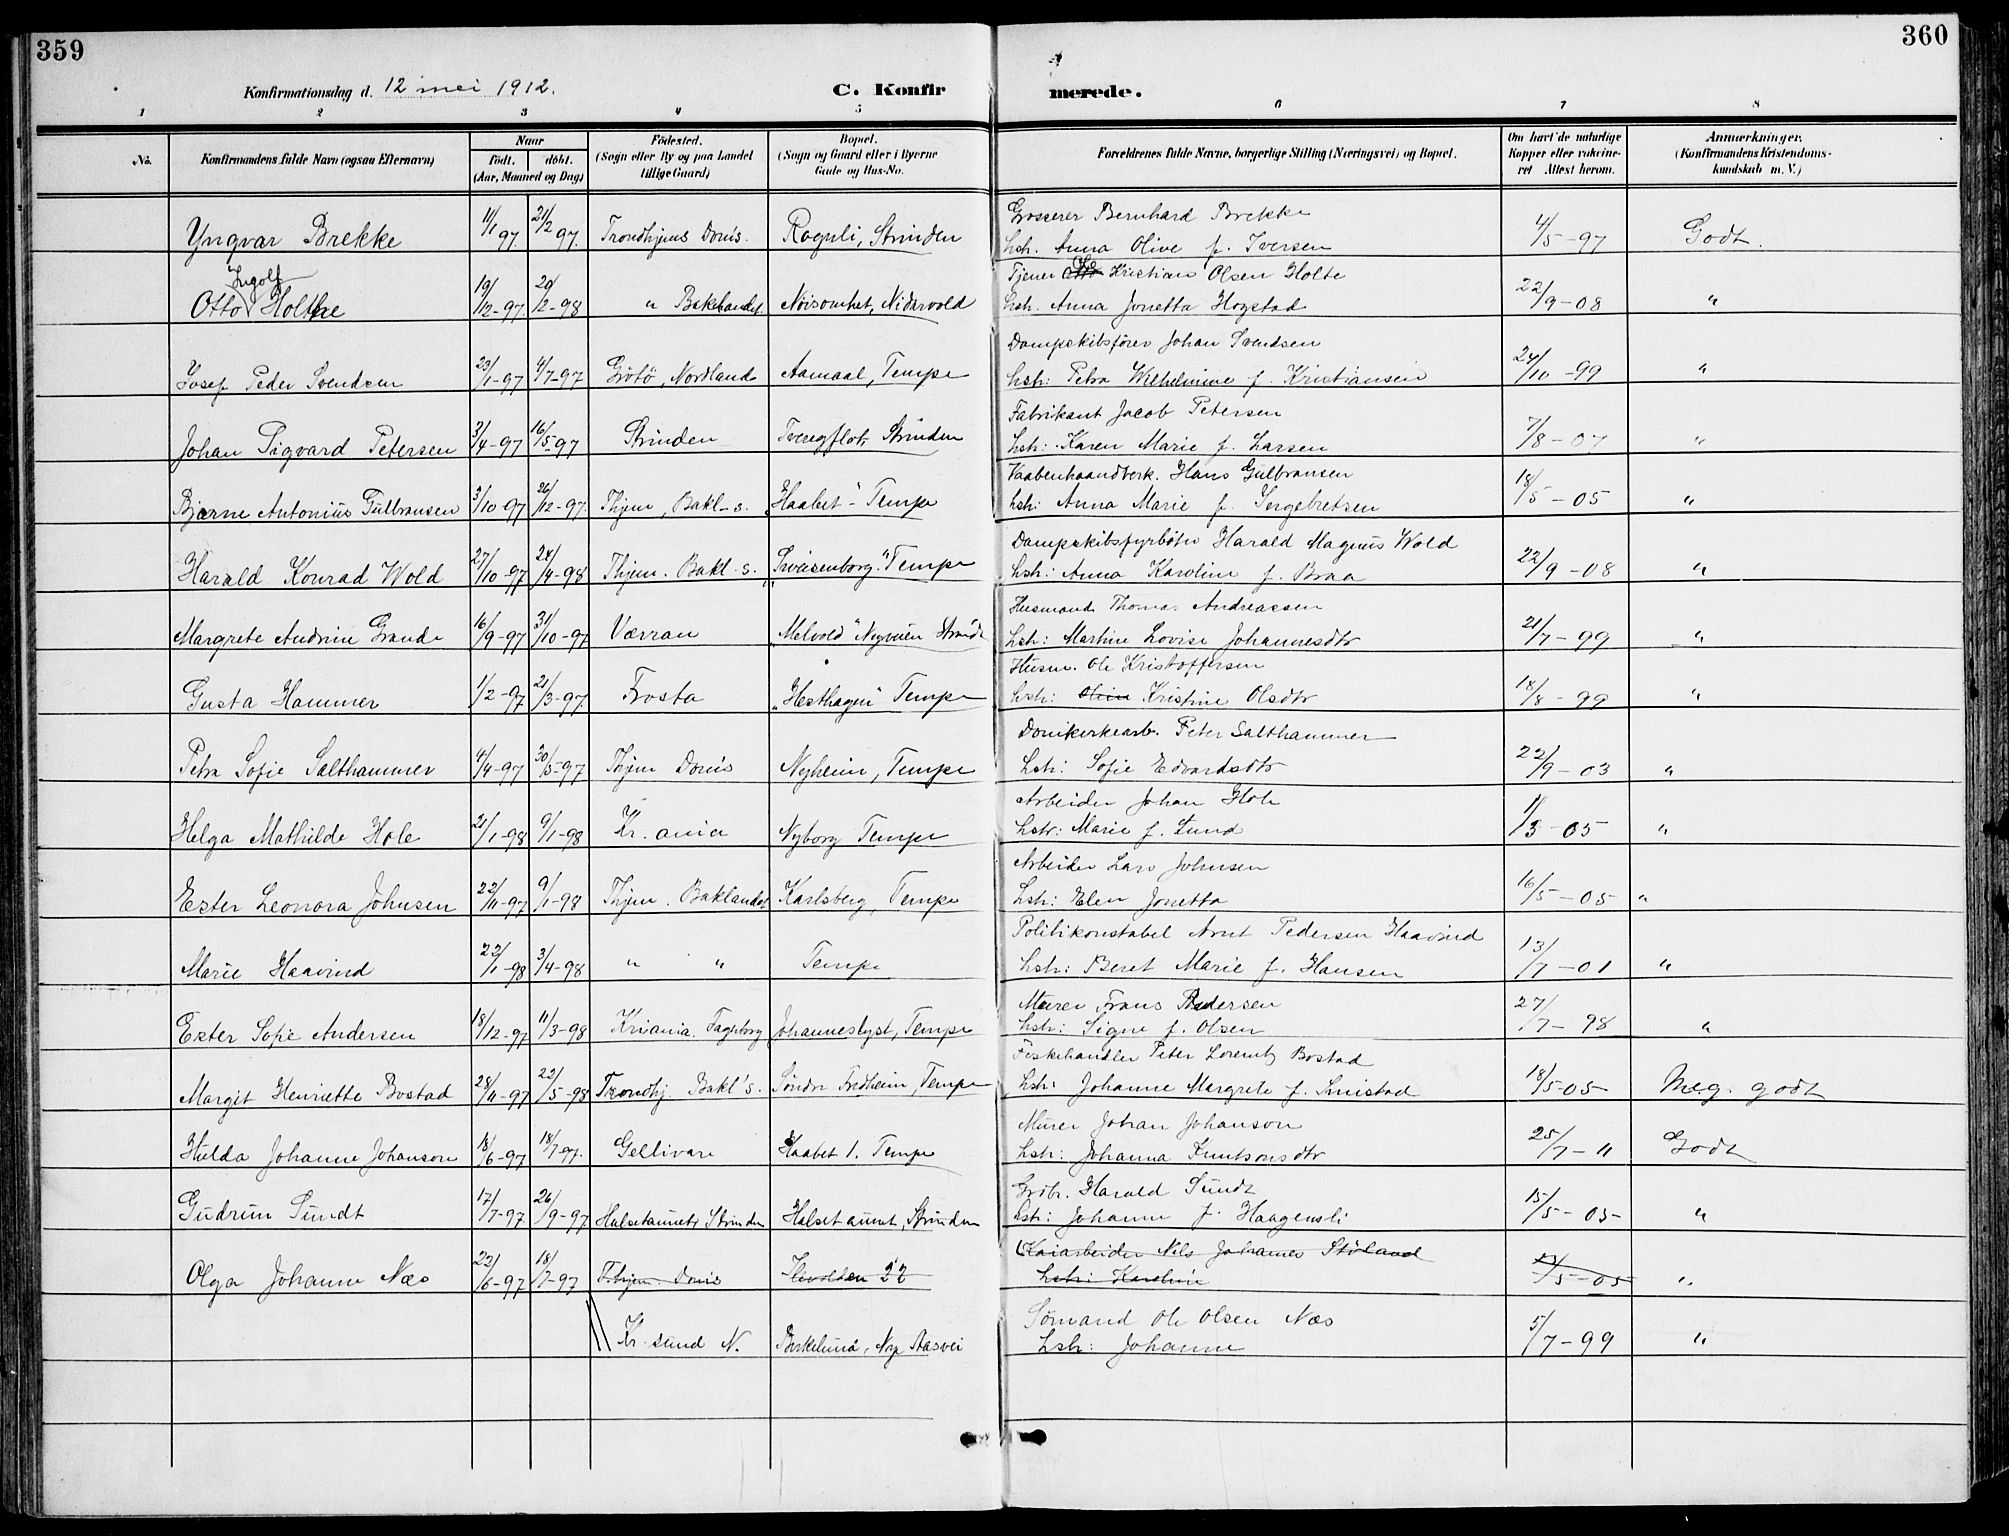 359
360
Konfirmationsdag d. 12 mei 1912.
C. Konfirmerede.
1 2 3 4 5 6 7 8
No.
Konfirmandens fulde Navn (ogsaa Efternavn)
Naar
födt. döbt.
(Aar, Maaned og Dag)
Födested.
(Sogn eller By og paa Landet
tillige Gaard)
Bopæl.
(Sogn og Gaard eller i Byerne
Gade og Hus-No.
Forældrenes fulde Navne, borgerlige Stilling (Næringsvei) og Bopæl.
Om havt de naturlige
Kopper eller vakcine-
ret Attest herom.
Anmærkninger.
(Konfirmandens Kristendoms-
kundskab m. V.)
Grosserer Bernhard Brekke
Yngvar Brekke 11/1 97. 21/2 97. Trondhjems Doms. Rognli, Strinden Hstr. Anna Olive f. Iversen 4/5-97 Godt.
Tjener Ole Kristian Olsen Holte
Otto Ingolf Holthe 19/12-97 20/2-98 " Baklandet. Nöisomhet, Nidarvold Hstr. Anna Jonetta Hogstad 22/9-08 "
Dampskibsförer Johan Svendsen
Josef Peder Svendsen 23/1-97 4/7-97 Grötö, Nordland Aamaal, Tempe Hstr: Petra Wilhelmine f. Kristiansen 24/10-99 "
Fabrikant Jacob Petersen
Johan Sigvard Petersen 3/4-97 16/5-97 Strinden Strinden Hstr: Karen Marie f. Larsen 7/8-07 "
Vaabenhaandverk. Hans Gulbransen
Bjarne Antonius Gulbransen 3/10-97 26/12-97. Thjem, Bakl-s. "Haabet" Tempe Hstr: Anna Marie f. Ingebretsen 18/5-05 "
Dampskibsfyrböter Harald Magnus Wold
Harald Konrad Wold 27/10-97 24/4-98 Thjem. Bakl.s. Tempe Hstr: Anna Karoline f. Braa 22/9-08 "
Husmand Thomas Andreassen
Margrete Andrine Grande 16/9-97 31/10-97 Værran "Melvold" Nyveien Strind Hstr: Martine Lovise Johannesdtr 21/7-99 "
Husm. Ole Kristoffersen
Gusta Hammer 1/2-97 21/3-97. Frosta "Hesthagen" Tempe Hstr: Kristine Olsdtr 18/8-99 "
Domkirkearb. Peter Salthammer
Petra Sofie Salthammer 4/4-97 30/5-97 Thjem Doms Nyheim, Tempe Hstr: Sofie Edvardsdtr 22/9-03 "
Arbeider Johan Hole
Helga Mathilde Hole 21/1-98 9/1-98 Kr.ania Nyborg Tempe Hstr: Marie f. Lund 11/3-05 "
Arbeider Lars Johnsen
Ester Leonora Johnsen 22/11-97 9/1-98 Thjem. Baklandet Karlsberg, Tempe Hstr: Elen Jonetta 16/5-05 "
Politikonstabel Arnt Pedersen Haavind
Marie Haavind 22/1-98 3/4-98 " " Tempe Hstr: Beret Marie f. Hansen 13/7-01 "
Murer Frans Andersen
Ester Sofie Andersen 18/12-97 11/3-98 Kriania. Fagerborg Johanneslyst, Tempe Hstr: Signe f. Olsen 27/7-98 "
Fiskehandler Peter Lorentz Bostad
Margit Henriette Bostad 28/11-97 22/5-98 Trondhj. Bakl's. Söndre Fridheim, Tempe Hstr: Johanne Margrete f. Smistad 18/5-05 Meg. godt
Murer Johan Johanson
Hulda Johanne Johanson 18/6-97 18/7 97. Gellivare Haabet 1. Tempe Hstr: Johanna Knutsonsdtr 25/7-11 Godt
Grdbr. Harald Sundt
Gudrun Sundt 17/7-97 26/9-97 Halsetaunet, Strinden Halsetaunet, Strinden Hstr: Johanne f. Haagensli 15/5-05 "
Kaiarbeider Nils Johannes Störland
Olga Johanne Næs 22/6-97 18/7-97 T.hjem. Doms Ilevolden 22 Hstr: Karoline /5-05 "
Sömand Ole Olsen Næs
Kr.sund N. Birkelund, Nye Aasvei Hstr: Johanne 5/7-99 "